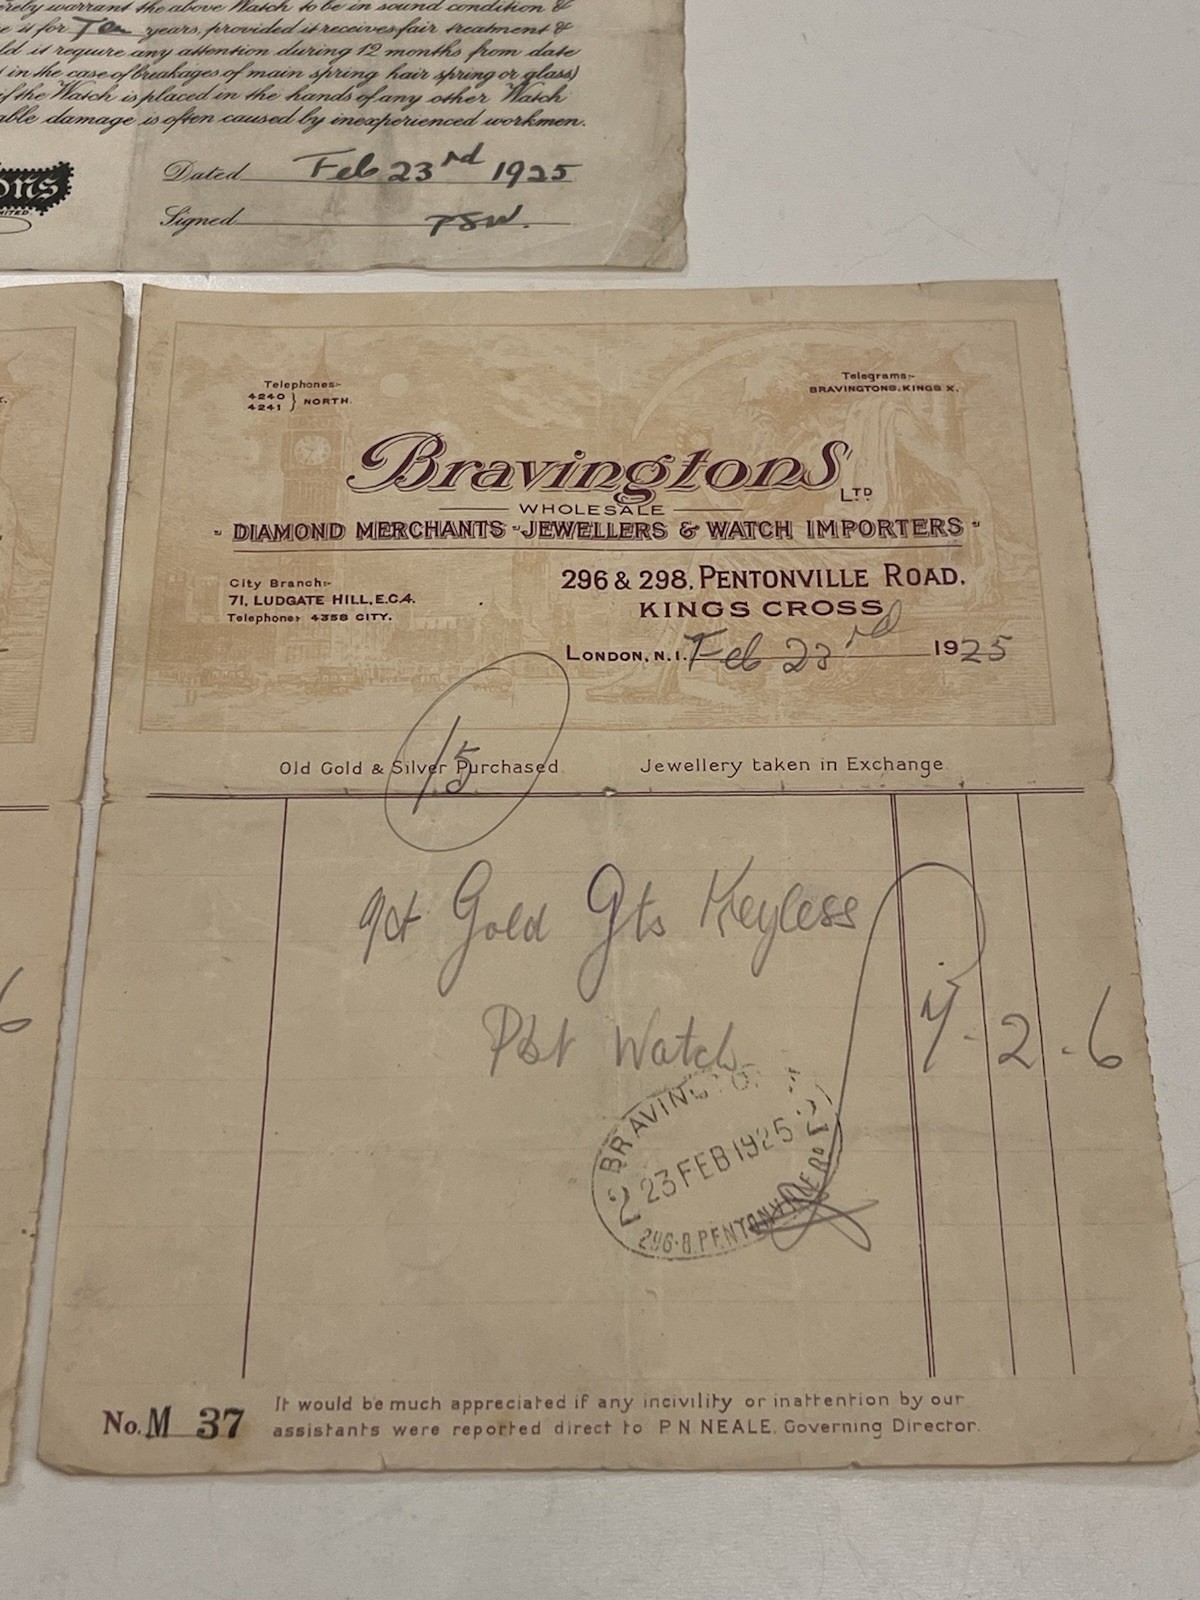 reby warrant the above Watch to be in sound condition &
e it for Ten years, provided it receives fair treatment &
ld it require any attention during 12 months from date
t in the case of breakages of main spring hair spring or glass)
if the Watch is placed in the hands of any other Watch
able damage is often caused by inexperienced workmen.
Dated Feb 23rd 1925
ons
MITED.
Signed PSW.
Telephones:-
4240
4241 } NORTH.
Telegrams:-
BRAVINGTONS. KINGS X.
Bravingtons LTD
WHOLESALE
DIAMOND MERCHANTS - JEWELLERS & WATCH IMPORTERS
City Branch:-
71, LUDGATE HILL, E.C.4.
Telephone: 4358 CITY.
296 & 298, PENTONVILLE ROAD.
KINGS CROSS
LONDON, N.1. Feb 23rd 1925
15
Old Gold & Silver Purchased. Jewellery taken in Exchange.
9ct Gold Gts Keyless
Pkt Watch 7-2-6
6
BRAVINGTO
2 23 FEB 1925 2
296-8 PENTONVILLE RD
No. M 37
It would be much appreciated if any incivility or inattention by our
assistants were reported direct to P.N. NEALE. Governing Director.